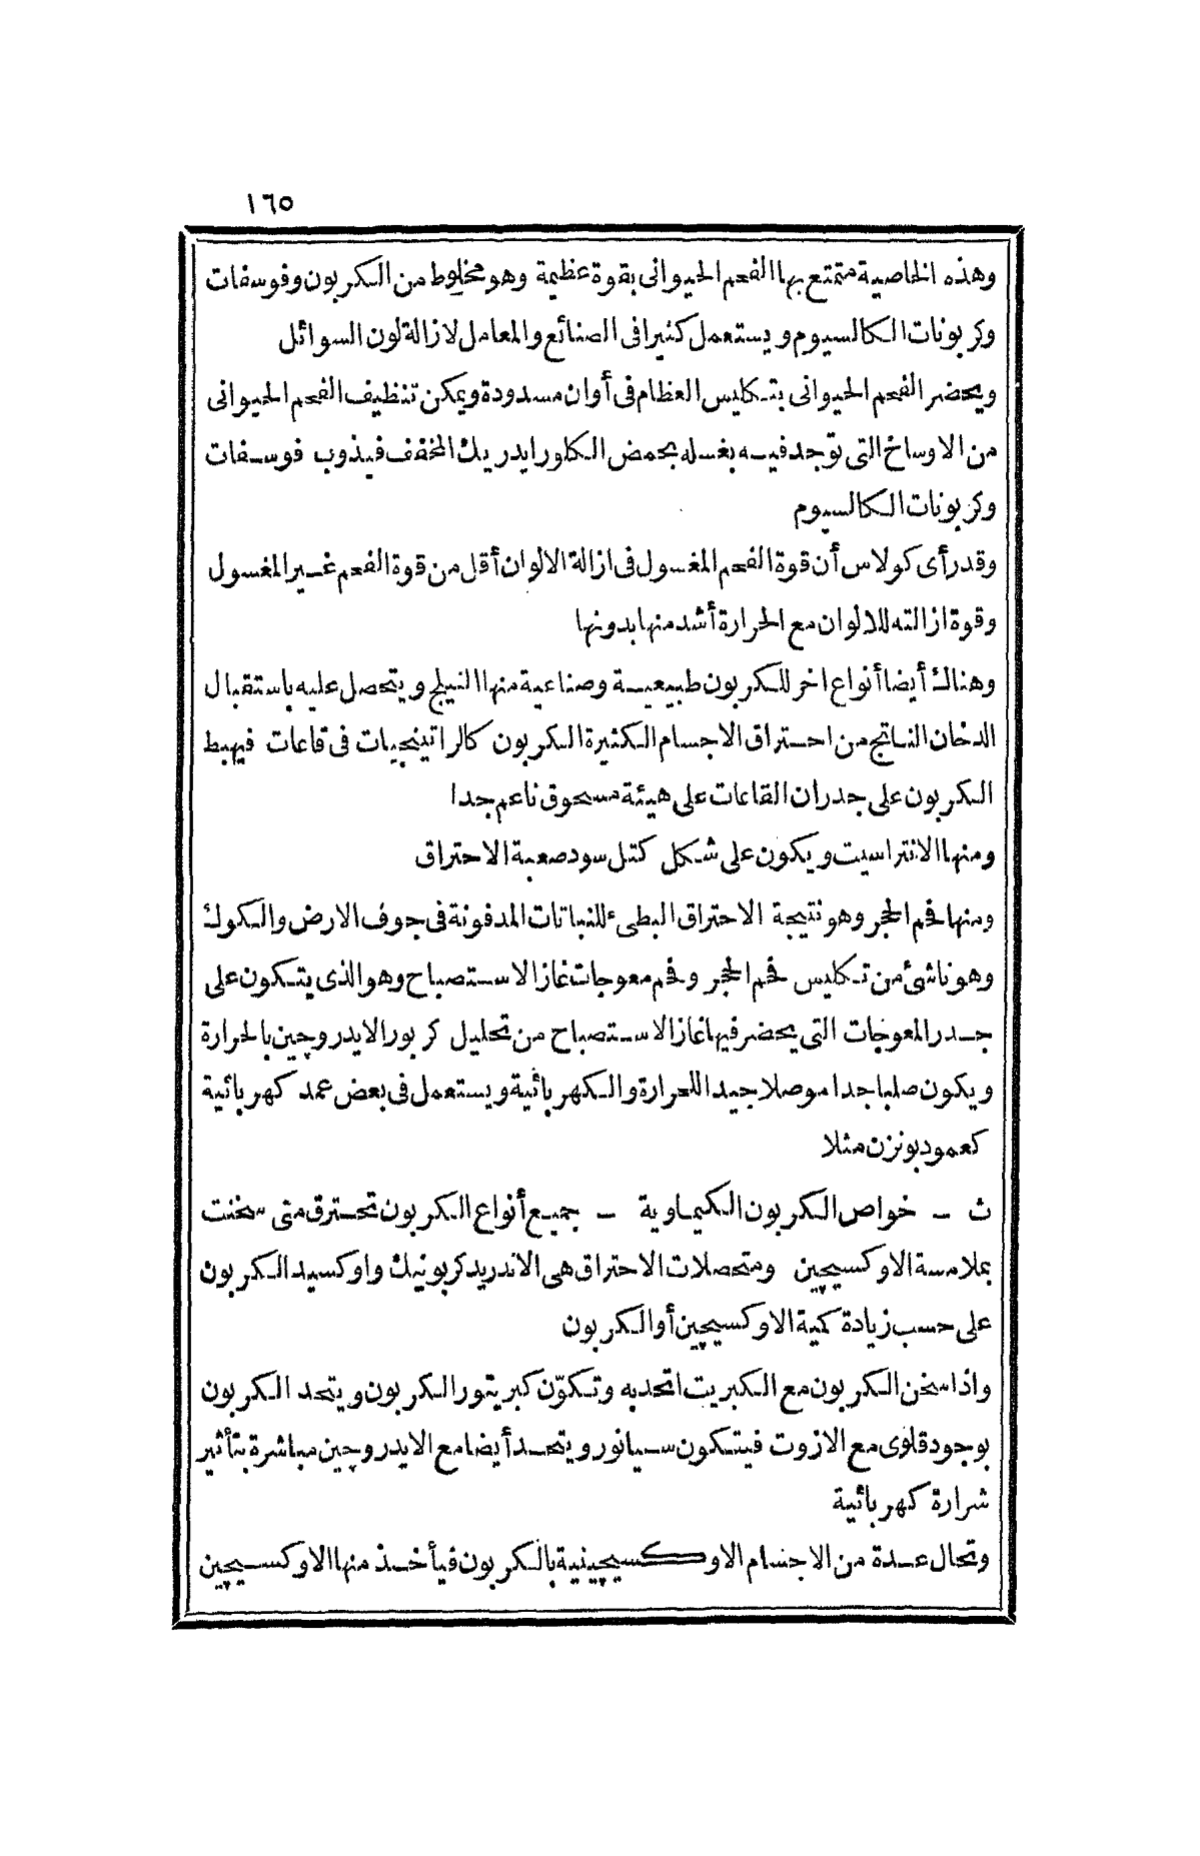 ١٦٥
وهذه الخاصية متمتع بها الفحم الحيوانى بقوة عظيمة وهو مخلوط من الكربون وفوسفات
وكربونات الكالسيوم ويستعمل كثيرا فى الصنائع والمعامل لازالة لون السوائل
ويحضر الفحم الحيوانى بتكليس العظام فى أوان مسدودة ويمكن تنظيف الفحم الحيوانى
من الاوساخ التى توجد فيه بغسله بحمض الكلورايدريك المخفف فيذوب فوسفات
وكربونات الكالسيوم
وقد رأى كولاس أن قوة الفحم المغسول فى ازالة الالوان أقل من قوة الفحم غير المغسول
وقوة ازالته للالوان مع الحرارة أشد منها بدونها
وهناك أيضا أنواع اخر للكربون طبيعية وصناعية منها النيلج ويتحصل عليه باستقبال
الدخان الناتج من احتراق الاجسام الكثيرة الكربون كالراتينجيات فى قاعات فيهبط
الكربون على جدران القاعات على هيئة مسحوق ناعم جدا
ومنها الانتراسيت ويكون على شكل كتل سود صعبة الاحتراق
ومنها فحم الحجر وهو نتيجة الاحتراق البطىء للنباتات المدفونة فى جوف الارض والكوك
وهو ناشئ من تكليس فحم الحجر وفحم معوجات غاز الاستصباح وهو الذى يتكون على
جدر المعوجات التى يحضر فيها غاز الاستصباح من تحليل كربور الايدروچين بالحرارة
ويكون صلبا جدا موصلا جيدا للحرارة والكهربائية ويستعمل فى بعض عمد كهربائية
كعمود بونزن مثلا
ث ـ خواص الكربون الكيماوية ـ جميع أنواع الكربون تحترق متى سخنت
بملامسة الاوكسيچين ومتحصلات الاحتراق هى الاندريد كربونيك واوكسيد الكربون
على حسب زيادة كمية الاوكسيچين أو الكربون
واذا سخن الكربون مع الكبريت اتحد به وتكوّن كبريتور الكربون ويتحد الكربون
بوجود قلوى مع الازوت فيتكون سيانور ويتحد أيضا مع الايدروچين مباشرة بتأثير
شرارة كهربائية
وتحال عدة من الاجسام الاوكسيچينية بالكربون فيأخذ منها الاوكسيچين